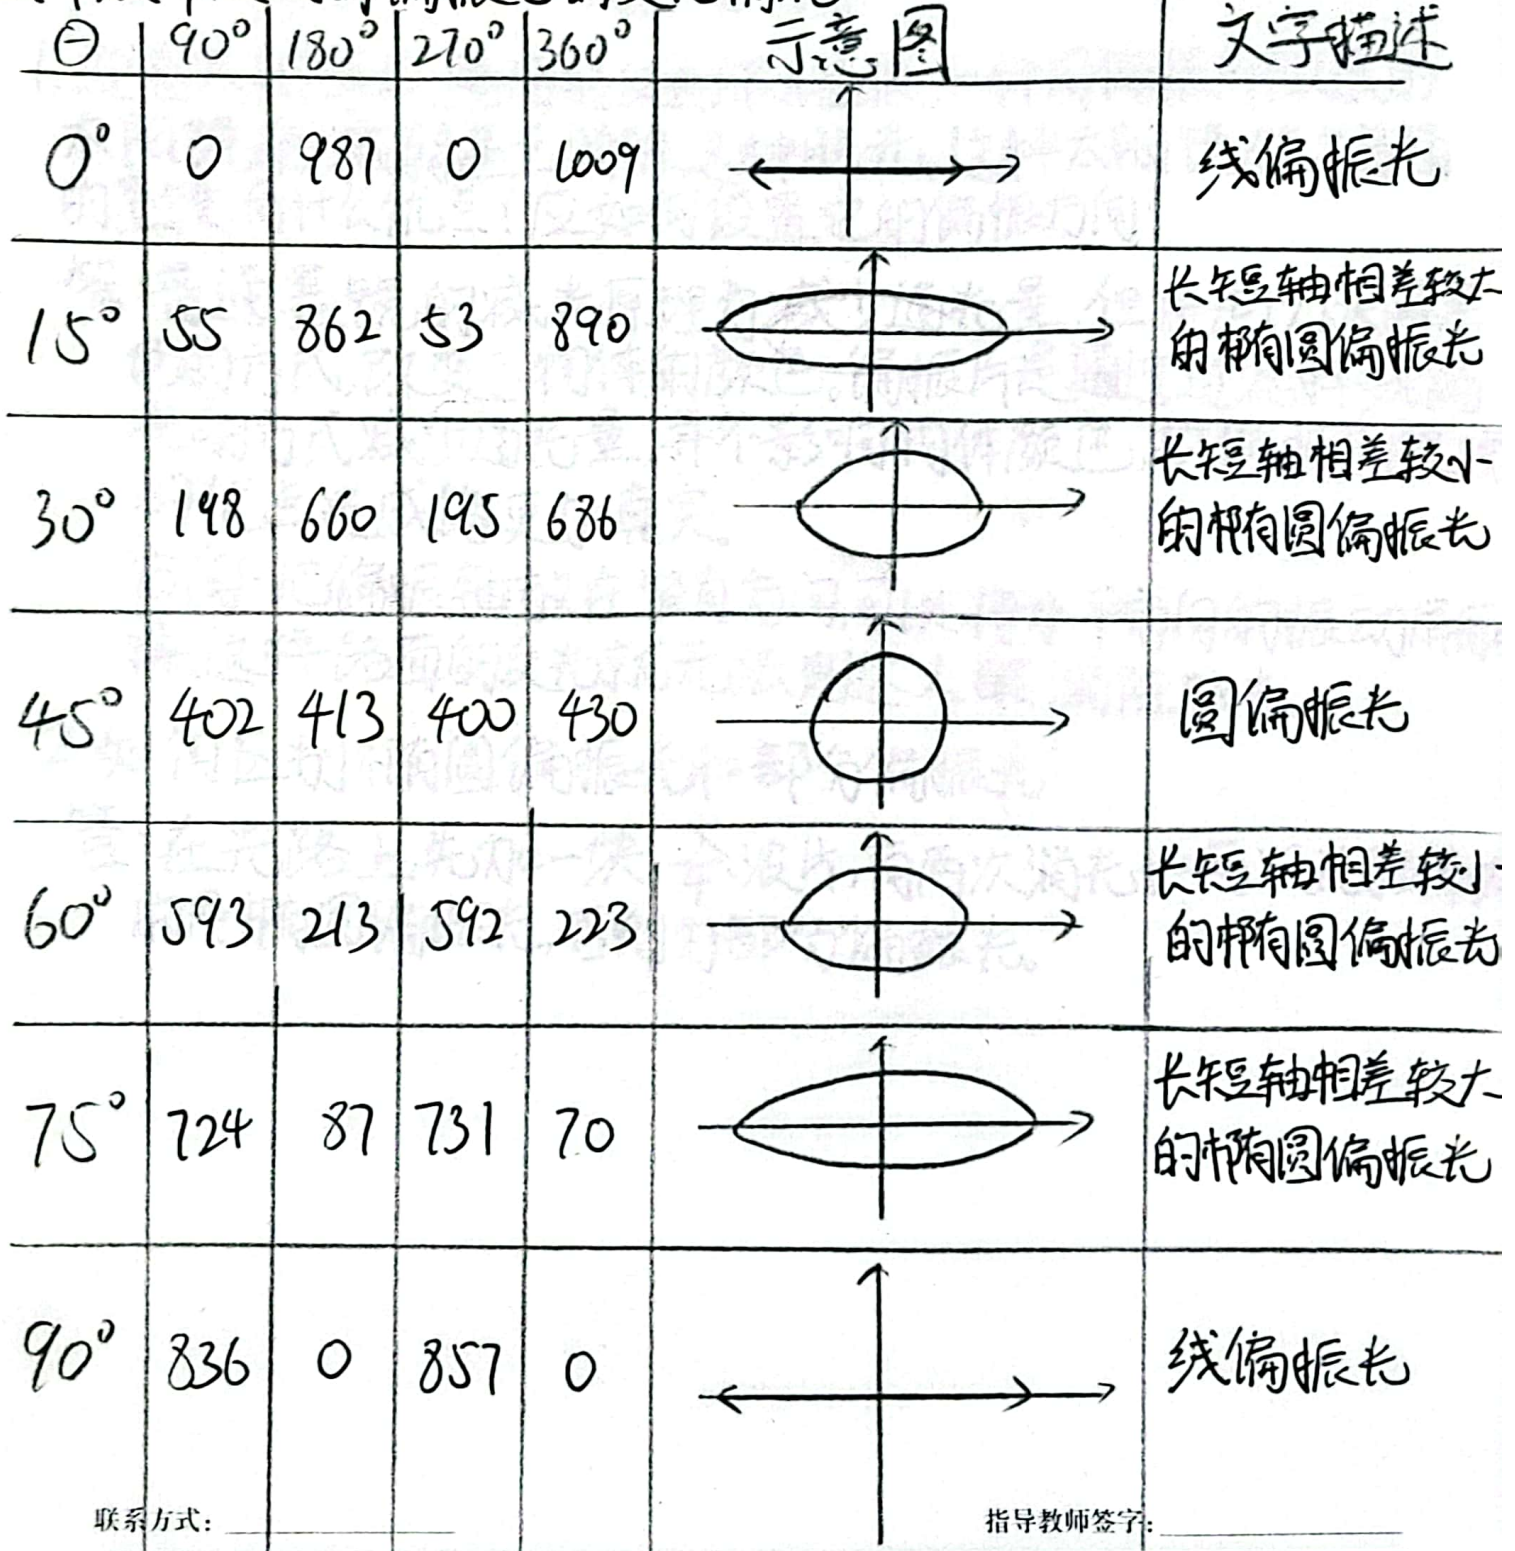 θ 90° 180° 270° 360° 示意图 文字描述
0° 0 987 0 1009 线偏振光
15° 55 862 53 890 长短轴相差较大
的椭圆偏振光
30° 198 660 195 686 长短轴相差较小
的椭圆偏振光
45° 402 413 400 430 圆偏振光
60° 593 213 592 223 长短轴相差较小
的椭圆偏振光
75° 724 87 731 70 长短轴相差较大
的椭圆偏振光
90° 836 0 857 0 线偏振光
联系方式: 指导教师签字: